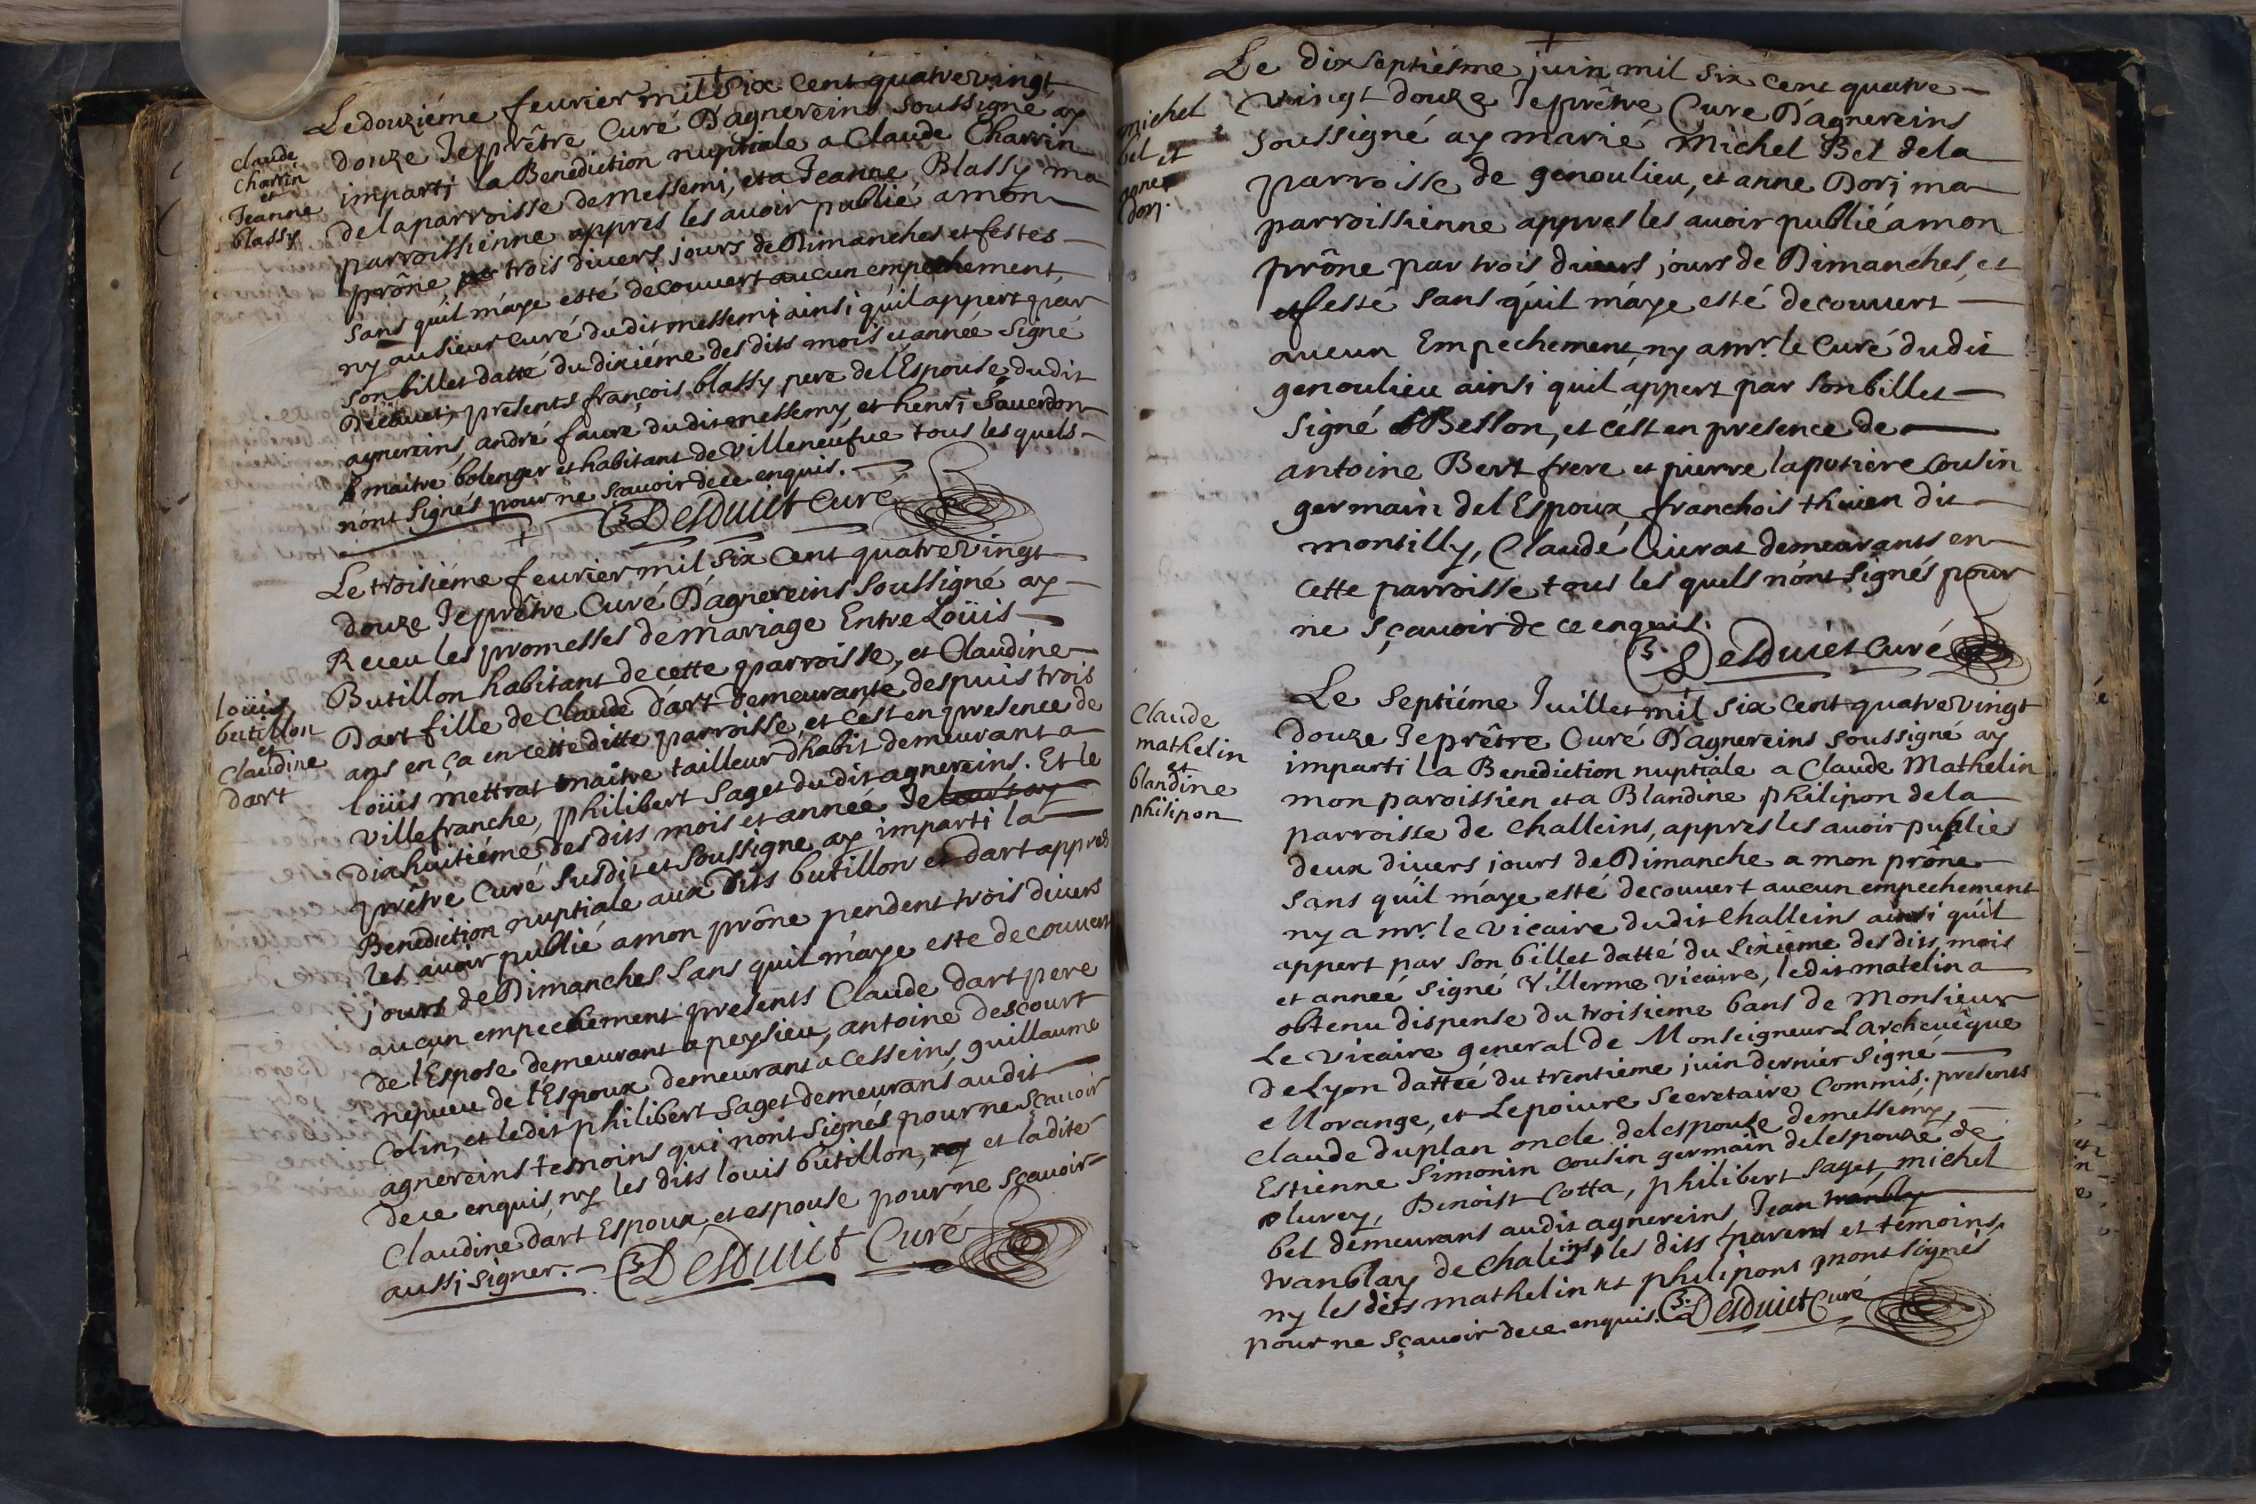 Le douziéme feurier mil six cent quatre vingt
douze Je prêtre Curé D'agnereins soussigné ay
imparti la Benediction nuptiale a Claude Charrin
de la parroisse de Messemi, et a Jeanne Blassy ma
parroissienne appres les auoir publié a mon
prône par trois diuers jours de Dimanches et festes
sans qu'il m'aye esté decouuert aucun empechement,
ny au sieur curé du dit messemi ainsi qu'il appert par
son billet datté du dixiéme des dits mois et année signé
presents françois blassy pere de l'Espouse du dit
agnereins, andré faure du dit messemy et henri Sauerdon
maitre bolenger et habitant de Villeneufue tous les quels
n'ont signés pour ne sçauoir de ce enquis.
Desduict Curé
claude
charrin
et
Jeanne
blassy
Le troisiéme feurier mil six Cent quatre Vingt
douze Je prêtre Curé D'agnereins soussigné ay
Receu les promesses de mariage Entre Loüis
Butillon habitant de cette parroisse, et Claudine
Dart fille de Claude d'art demeurante despuis trois
ans en ça en cette ditte parroisse, et c'est en presence de
loüis mettrat maitre tailleur d'habit demeurant a
Villefranche, philibert Saget du dit agnereins. Et le
dixhuitiéme des dits mois et année Je
prêtre Curé susdit et soussigne ay imparti la
Benediction nuptiale aux dits butillon et dart appres
les auoir publié a mon prône pendent trois diuers
jours de Dimanches sans qu'il m'aye este decouuert
aucun empechement presents Claude dart pere
de l'Espose demeurant a peysieu, antoine descourt
nepueu de l'Espoux demeurant a Cesseins, guillaume
Colin, et le dit philibert Saget demeurans au dit
agnereins temoins qui n'ont signés pour ne sçauoir
de ce enquis, ny les dits louis butillon, et la dite
Claudine dart Espoux et espouse pour ne sçauoir
aussi signer. Desduict Curé
loüis
butillon
et
Claudine
dart
Le dix septiésme juin mil six cent quatre
vingt douze Je prêtre Cure D'agnereins
soussigné ay marié Michel Bel de la
parroisse de genoulieu, et anne Dori ma
parroissienne appres les auoir publié a mon
prône par trois diuers jours de Dimanches, et
feste sans qu'il m'aye esté decouuert
aucun Empechement, ny a mr. le Curé du dit
genoulieu ainsi quil appert par son billet
signé Besson, et c'est en presence de
antoine Bert frere et pierre laputiere Cousin
germain del Espoux franchois thiuen dit
montilly, Claude liurat demeurants en
cette parroisse tous les quels n'ont signés pour
ne sçauoir de ce enquis.
Desduict curé
michel
bel et
agnes
dori.
Le septiéme Juillet mil six Cent quatre vingt
douze Je prêtre Curé D'agnereins soussigné ay
imparti la Benediction nuptiale a Claude Mathelin
mon paroissien et a Blandine philipon de la
parroisse de Challeins, appres les auoir publies
deux diuers jours de Dimanche a mon prône
sans qu'il m'aye esté decouuert aucun empechement
ny a mr. le vicaire du dit Challeins ainsi qu'il
appert par son billet datté du sixieme des dits mois
et année signé Villerme Vicaire, le dit matelin a
obtenu dispense du troisieme bans de Monsieur
Le Vicaire general de Monseigneur L'archeuêque
de Lyon dattée du trentieme juin dernier signé
Morange, et Lepoiure secretaire Commis; presents
Claude duplan oncle de lespouse de messemy,
Estienne Simonin cousin germain de lespouse de
lurey, Benoist Cotta, philibert Saget, michel
bel demeurans au dit agnereins, Jean
tranblay de Chaleins, les dits parens et temoins,
ny les dits mathelin et philipont n'ont signés
pour ne sçauoir de ce enquis. Desduict Curé
Claude
mathelin
et
blandine
philipon